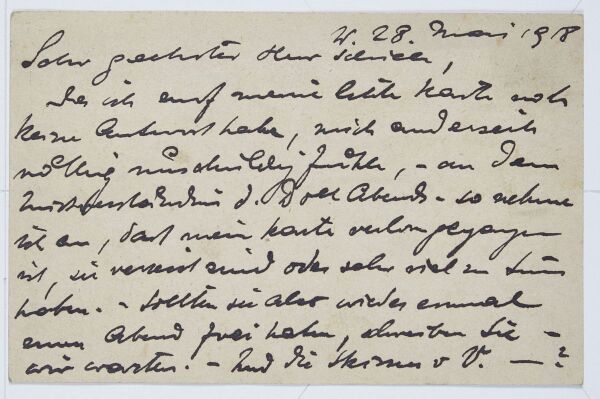 W. 28. Mai 1918
Sehr geehrter Herr Schiele,
Da ich auf meine letzte Karte noch
keine Antwort habe, mich anderseits
völlig unschuldig fühle, – an dem
Missverständnis d. Doll Abends – so nehme
ich an, dass meine Karte verlorengegangen
ist, sie verreist sind oder sehr viel zu tun
haben. – Sollten sie also wieder einmal
einen Abend frei haben, schreiben Sie –
wir warten. – Und die Skizzen v V. — ?